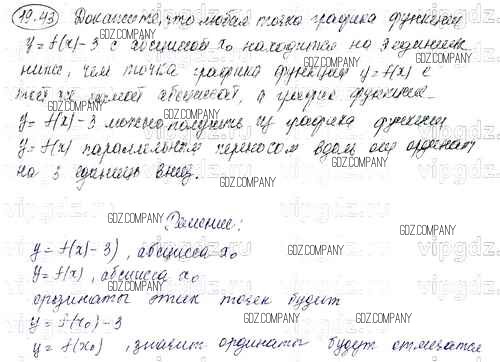 19.43 Докажите, что любая точка графика функции
y = f(x) - 3 с абсциссой x₀ находится на 3 единицы
ниже, чем точка графика функции y = f(x) с
той же самой абсциссой, а график функции
y = f(x) - 3 можно получить из графика функции
y = f(x) параллельным переносом вдоль оси ординат
на 3 единицы вниз.
Решение:
y = f(x) - 3), абсцисса x₀
y = f(x), абсцисса x₀
ординаты этих точек будут
y = f(x₀) - 3
y = f(x₀), значит ординаты будут отличатся